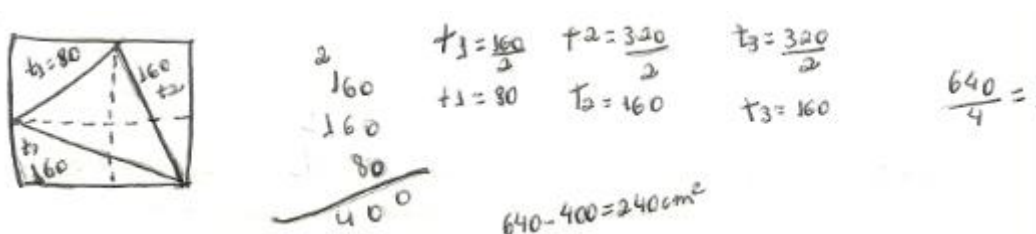 t1=80
160
t2
t3
160
2
160
160
80
400
t1=160/2
t1=80
t2=320/2
T2=160
t3=320/2
t3=160
640/4=
640-400=240cm²